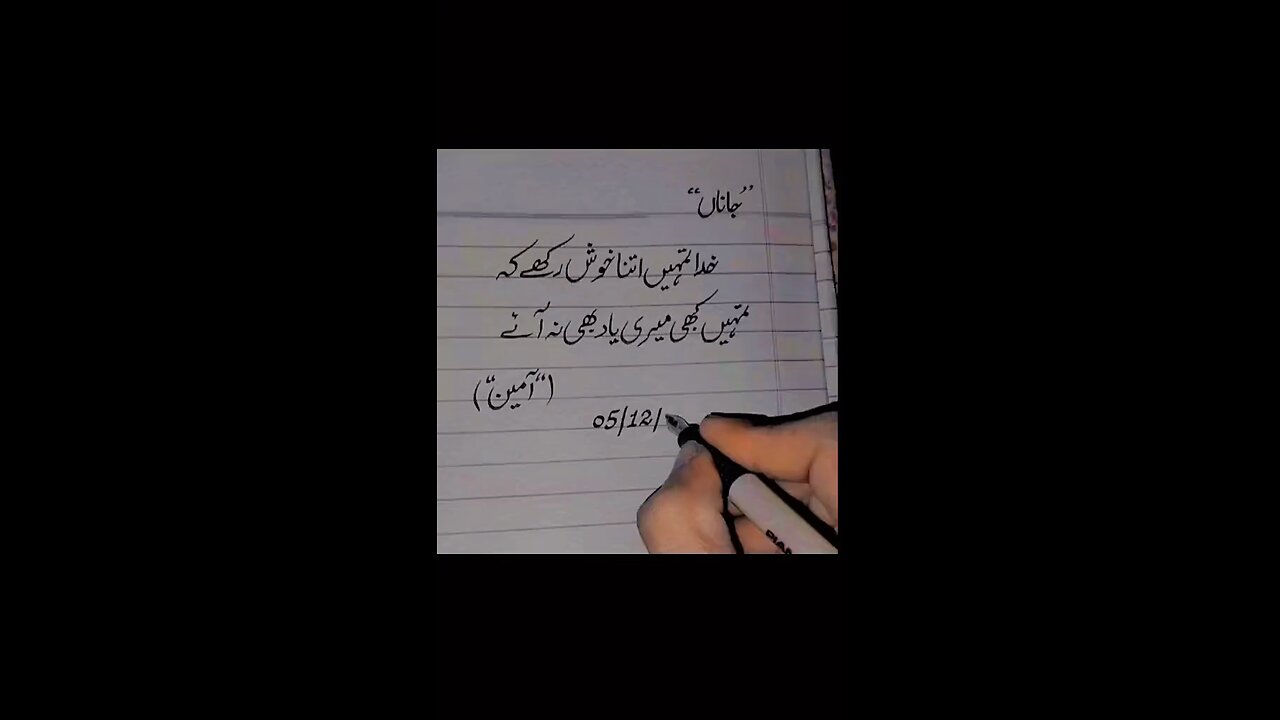 ”جاناں“
خدا تمہیں اتنا خوش رکھے کہ
تمہیں کبھی میری یاد بھی نہ آئے
(”آمین“)
05/12/